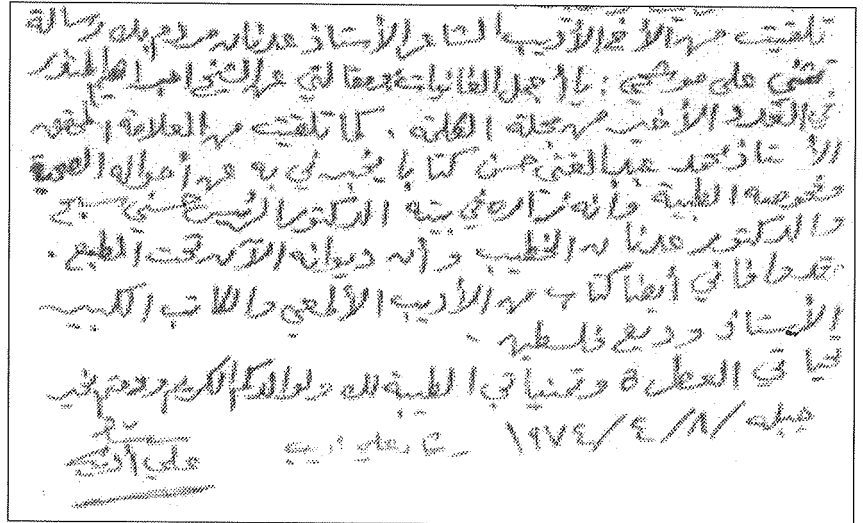 تلقيت من الأخ الأديب الشاعر الأستاذ عدنان مردم بك رسالة
يثني على موشحي: يا أجمل الغانيات ومقالتي عن الشيخ ابراهيم المنذر
في العدد الأخير من مجلة الكلمة. كما تلقيت من العلامة المحقق
الأستاذ محمد عبد الغني حسن كتابا يخبرني به عن أحواله الصحية
وفحوصه الطبية وأنه زاره في بيته الدكتور الرئيس حسني سبح
والدكتور عدنان الخطيب وأن ديوانه الآن تحت الطبع.
وافاني أيضا كتاب من الأديب الألمعي والكاتب الكبير
الأستاذ وديع فلسطين.
تحياتي العطرة وتمنياتي الطيبة لك ولوالدكم الكريم ودمتم بخير
جبلة /٨/٤/١٩٧٤ رشاد علي اديب
علي أديب